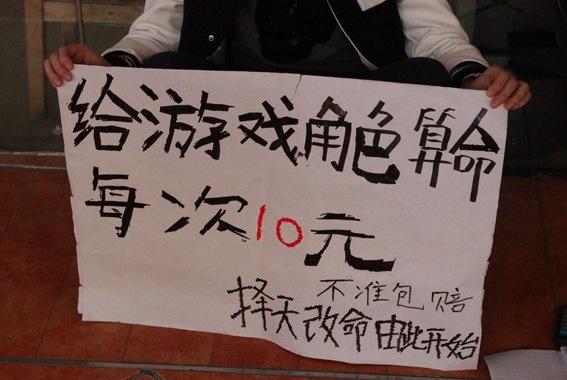 给游戏角色算命
每次10元
不准包赔
择天改命由此开始